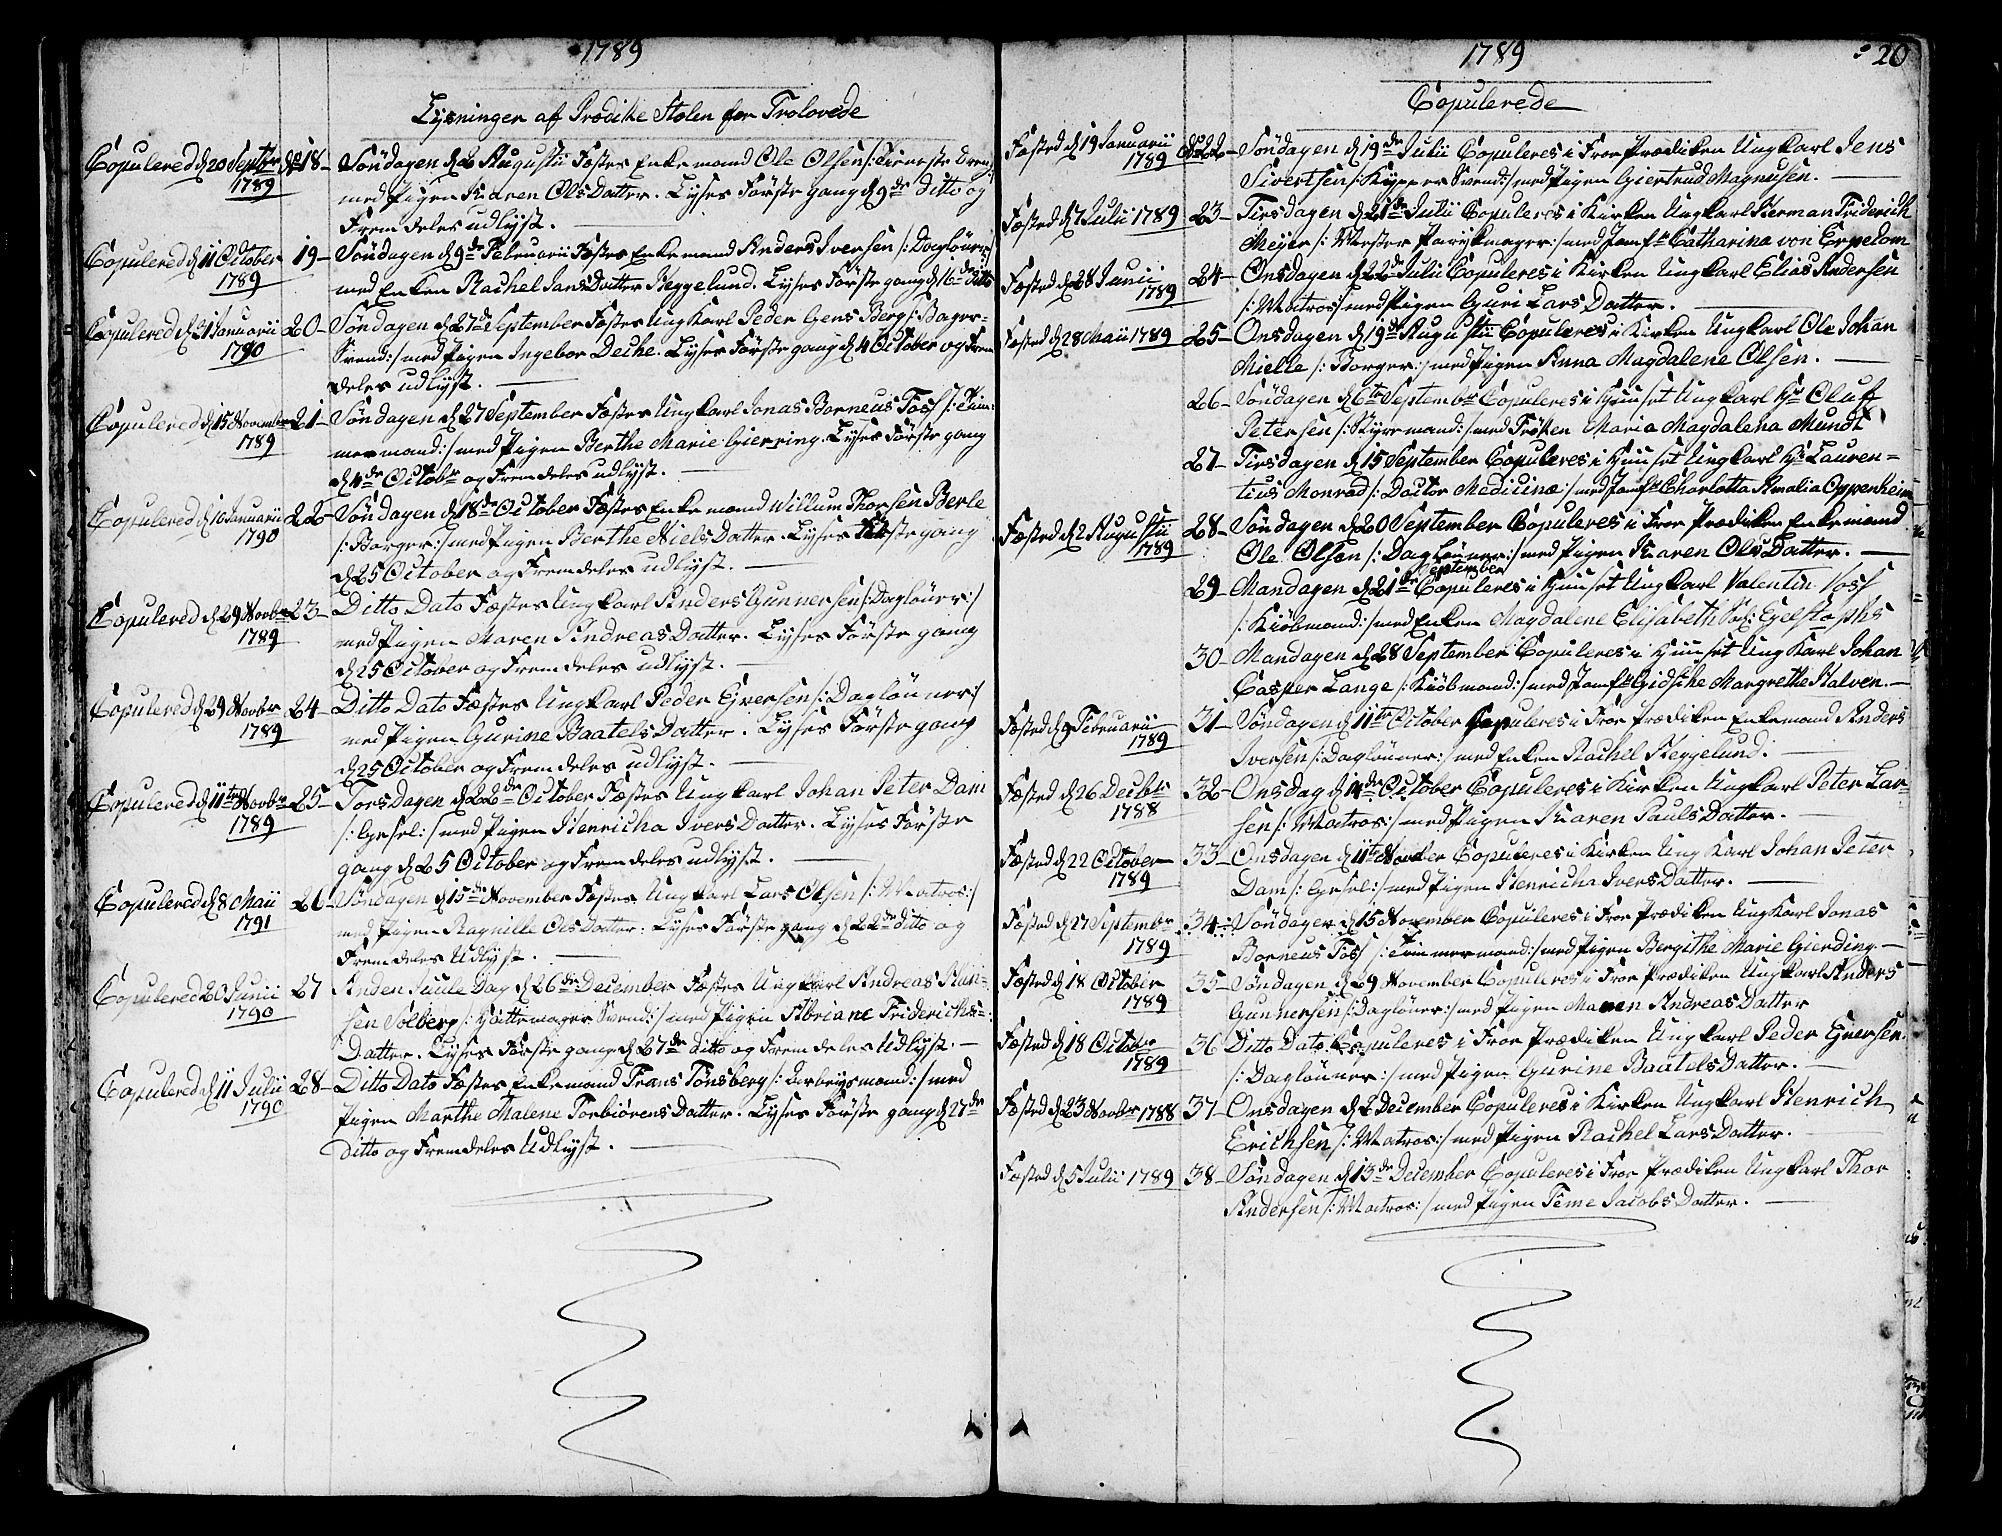 1789
Lysninger af Prædike Stolen for Trolovede
Copulered d 20 Septbr 1789
18 - Søndagen d 2 Augustii Fæstes Enkemand Ole Olsen
med Pigen Karen Ols Datter. Lyses Første gang d 9de ditto og
Fremdeles udlyst.
Copulered d 11 October 1789
19 - Søndagen d 9de Februarii Fæstes Enkemand Anders Iversen /: Dagløner :/
med Enken Rachel Jans Datter Heggelund. Lyses Første gang d 16de ditto
Copulered d 21 Januarii 1790
20 - Søndagen d 27de September Fæstes Ungkarl Peder Gens Berg /: Bager-
Svend :/ med Pigen Ingebor Deche. Lyses Første gang d 4 October og Frem
deles udlyst.
Copulered d 15 November 1789
21 - Søndagen d 27 September Fæstes Ungkarl Jonas Borneus Foss /: Tim-
mermand :/ med Pigen Berthe Marie Gierring. Lyses Første gang
d 4de Octobr og Fremdeles udlyst.
Copulered d 10 Januarii 1790
22 - Søndagen d 18de October Fæstes Enkemand Willum Thorsen Berle
/: Borger :/ med Pigen Berthe Niels Datter. Lyses Første gang
d 25 October og Fremdeles udlyst.
Copulered d 29 Novbr 1789
23 - Ditto Dato Fæstes Ungkarl Anders Gunnersen /: Dagløner :/
med Pigen Maren Andreas Datter. Lyses Første gang
d 25 October og Fremdeles udlyst.
Copulered d 29 Novbr 1789
24 - Ditto Dato Fæstes Ungkarl Peder Ejversen /: Daglønner :/
med Pigen Gurine Baatels Datter. Lyses Første gang
d 25 October og Fremdeles udlyst.
Copulered d 11te Novbr 1789
25 - Torsdagen d 22de October Fæstes Ungkarl Johan Peter Dam
/: Gesel :/ med Pigen Henricha Ivers Datter. Lyses Første
gang d 25 October og Fremdeles udlyst.
Copulered d 8 Maii 1791
26 - Søndagen d 15de November Fæstes Ungkarl Lars Olsen /: Matros :/
med Pigen Ragnille Ols Datter. Lyses Første gang d 22de dito og
Fremdeles Udlyst.
Copulered 20 Junii 1790
27 Anden Juule Dag d 26de December Fæstes Ungkarl Andreas Han-
sen Solberg /: Hattemager Svend :/ med Pigen Abriane Friderichs-
Datter. Lyses Første gang d 27de ditto og Fremdeles Udlyst.
Copulered d 11 Julii 1790
28 - Ditto Dato Fæstes Enkemand Frans Tønsberg /: Arbeysmand :/ med
Pigen Marthe Malene Torbiørens Datter. Lyses Første gang d 27de
Ditto og Fremdeles Udlyst.
1789
20
Copulerede
Fæsted d 19 Januarii 1789
22 - Søndagen d 19de Julii Copuleres i Fror Prædiken Ungkarl Jens
Sivertsen /: Kypper Svend :/ med Pigen Giertrud Magnusen.
Fæsted d 7 Julii 1789
23 - Tirsdagen d 21de Julii Copuleres i Kirken Ungkarl Herman Friderich
Meyer /: Mester Parykmager :/ med Jomfr Catharina von Erpecom
Fæsted d 28 Junii 1789
24 - Onsdagen d 22de Julii Copuleres i Kirken Ungkarl Elias Andersen
/: Matros :/ med Pigen Guri Lars Datter.
Fæsted d 28 Maii 1789
25 - Onsdagen d 19de Augustii Copuleres i Kirken Ungkarl Ole Johan
Mielle /: Borger :/ med Pigen Anna Magdalene Olsen.
26 - Søndagen d 6te Septembr Copuleres i Huuset Ungkarl Hr Oluf
Petersen /: Styremand :/ med Frøken Maria Magdalena Mundt
27 - Tirsdagen d 15 September Copuleres i Huuset Ungkarl Hr Lauren-
tius Monrad /: Doctor Medicinæ :/ med Jomfr Charlotta Amalia Oppenheim
Fæsted d 2 Augustii 1789
28 - Søndagen d 20 September Copuleres i Fror Prædiken Enkemand
Ole Olsen /: Dagløner :/ med Pigen Karen Ols Datter.
29 - Mandagen d 21de September Copuleres i Huuset Ungkarl Valentin Foss
/: Kiøbmand :/ med Enken Magdalene Elisabeth
30 - Mandagen d 28 September Copuleres i Huuset Ungkarl Johan
Casper Lange /: Kiøbmand :/ med Jomfr Gidsche Margrethe Halven.
Fæsted d 9 Februarii 1789
31 - Søndagen d 11te October Copuleres i Fror Prædiken Enkemand Anders
Iversen /: Dagløner :/ med Enken Rachel Heggelund.
Fæsted d 26 Decbr 1788
32 - Onsdag d 14de October Copuleres i Kirken Ungkarl Peter Lar-
sen /: Matros :/ med Pigen Karen Pauls Datter.
Fæsted d 22 October 1789
33 - Onsdagen d 11te Novber Copuleres i Kirken Ung Karl Johan Peter
Dam /: Gesel :/ med Pigen Henricha Ivers Datter.
Fæsted d 27 Septembr 1789
34 - Søndagen d 15 November Copuleres i Fror Prædiken Ungkarl Jonas
Borneus Foss /: Timmermand :/ med Pigen Bergithe Marie Gierding
Fæsted d 18 October 1789
35 - Søndagen d 29 November Copuleres i Fror Prædiken Ungkarl Anders
Gunnersen /: Dagløner :/ med Pigen Maren Andreas Datter
Fæsted d 18 Octobr 1789
36 Ditto Dato Copuleres i Fror Prædiken Ungkarl Peder Ejversen
/: Dagløner :/ med Pigen Gurine Baatels Datter.
Fæsted d 23 Novbr 1788
37 - Onsdagen d 2 December Copuleres i Kirken Ungkarl Henrich
Erichsen /: Matros :/ med Pigen Rachel Lars Datter.
Fæsted d 5 Julii 1789
38 - Søndagen d 13de December Copuleres i Fror Prædiken Ungkarl Thor
Andersen /: Matros :/ med Pigen Feme Jacobs Datter.